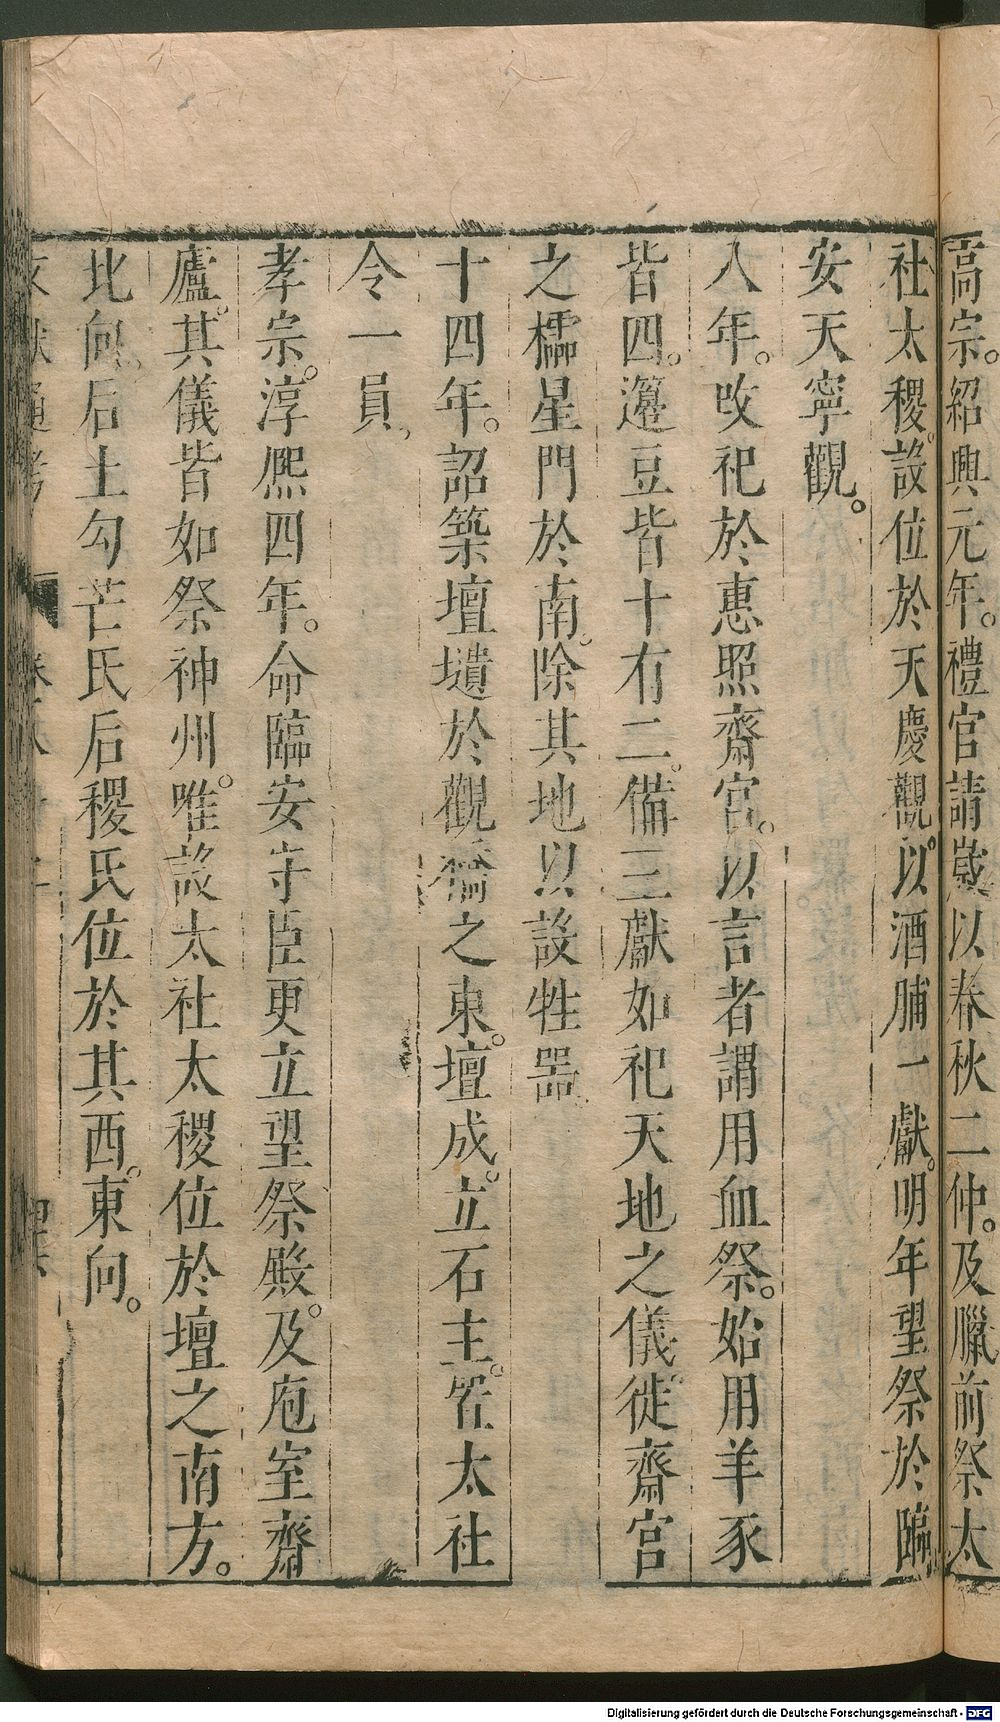 高宗。紹興元年。禮官請歲以春秋二仲。及臘前祭太
社太稷。設位於天慶觀。以酒脯一獻。明年望祭於臨
安天寧觀。
八年。改祀於惠照齋宮。以言者謂用血祭。始用羊豕
皆四。籩豆皆十有二。備三獻如祀天地之儀。徙齋宮
之櫺星門於南。除其地以設牲器
十四年。詔築壇壝於觀橋之東。壇成。立石主。置太社
令一員。
孝宗。淳熙四年。命臨安守臣更立望祭殿。及庖室齋
廬。其儀皆如祭神州。唯設太社太稷位於壇之南方。
北向。后土勾芒氏后稷氏位於其西。東向。
Digitalisierung gefördert durch die Deutsche Forschungsgemeinschaft - DFG